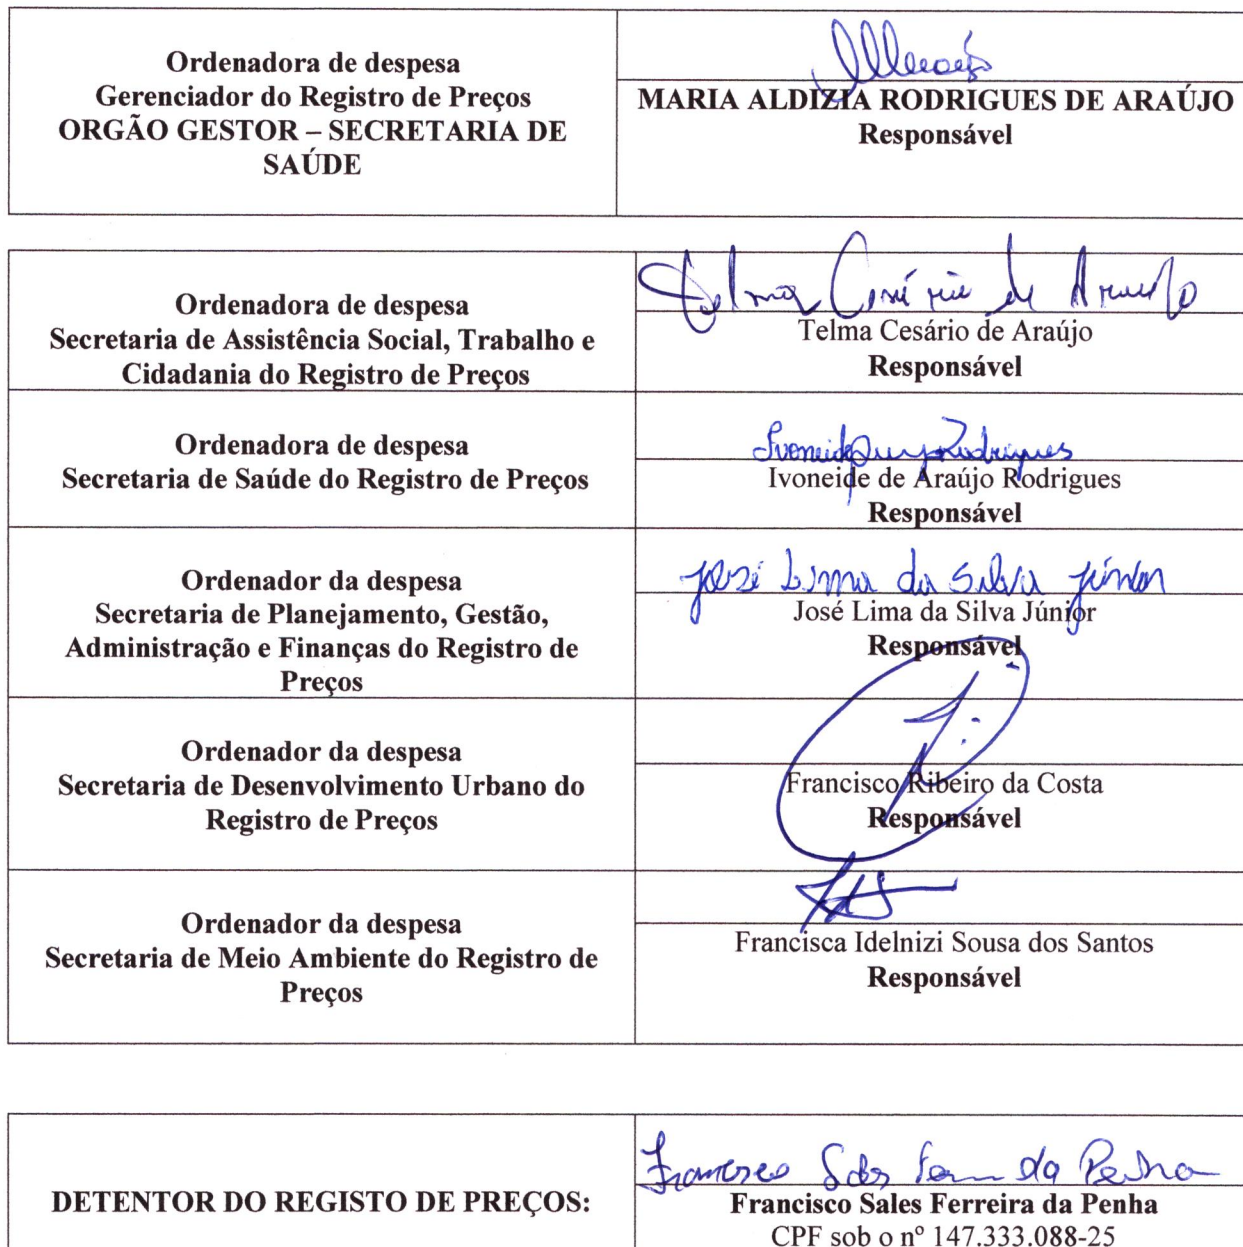 Ordenadora de despesa
Gerenciador do Registro de Preços
ORGÃO GESTOR – SECRETARIA DE
SAÚDE
MARIA ALDIZIA RODRIGUES DE ARAÚJO
Responsável
Ordenadora de despesa
Secretaria de Assistência Social, Trabalho e
Cidadania do Registro de Preços
Telma Cesário de Araujo
Telma Cesário de Araújo
Responsável
Ordenadora de despesa
Secretaria de Saúde do Registro de Preços
Ivoneide Rodrigues
Ivoneide de Araújo Rodrigues
Responsável
Ordenador da despesa
Secretaria de Planejamento, Gestão,
Administração e Finanças do Registro de
Preços
José Lima da Silva Júnior
José Lima da Silva Júnior
Responsável
Ordenador da despesa
Secretaria de Desenvolvimento Urbano do
Registro de Preços
Francisco Ribeiro da Costa
Responsável
Ordenador da despesa
Secretaria de Meio Ambiente do Registro de
Preços
Francisca Idelnizi Sousa dos Santos
Responsável
DETENTOR DO REGISTO DE PREÇOS:
Francisco Sales da Penha
Francisco Sales Ferreira da Penha
CPF sob o nº 147.333.088-25